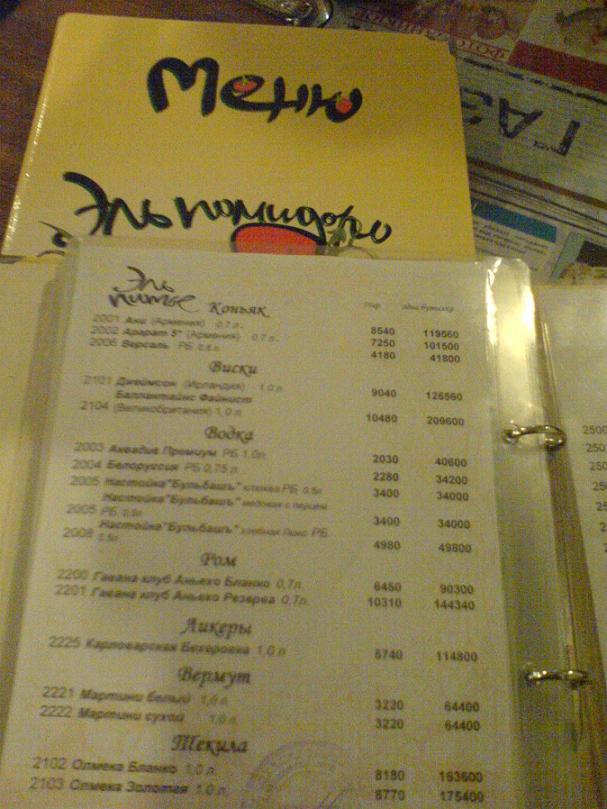 Меню
Эль помидоро
ГАЗ
Эль питье
Коньяк
2001 Ани (Армения) 0.7 л. 8540 119560
2002 Арарат 5* (Армения) 0.7 л. 7250 101500
2006 Версаль РБ 0.5 л. 4180 41800
Виски
2101 Джеймсон (Ирландия) 1.0 л. 9040 126560
Баллантайнс Файнист
2104 (Великобритания) 1,0 л. 10480 209600
Водка
2003 Аквадив Премиум РБ 1.0л. 2030 40600
2004 Белоруссия РБ 0,75 л. 2280 34200
2005 Настойка"Бульбашъ" клюква РБ 0,5л 3400 34000
Настойка"Бульбашъ" медовая с перцем
2005 РБ 0,5л 3400 34000
Настойка"Бульбашъ" хлебная Люкс РБ
2008 0,5л 4980 49800
Ром
2200 Гавана клуб Аньехо Бланко 0,7л. 6450 90300
2201 Гавана клуб Аньехо Резерва 0,7л. 10310 144340
Ликеры
2225 Карловарская Бехеровка 1,0 л 5740 114800
Вермут
2221 Мартини белый 1,0 л. 3220 64400
2222 Мартини сухой 1,0 л. 3220 64400
Текила
2102 Олмека Бланко 1,0 л. 8180 163600
2103 Олмека Золотая 1,0 л. 8770 175400